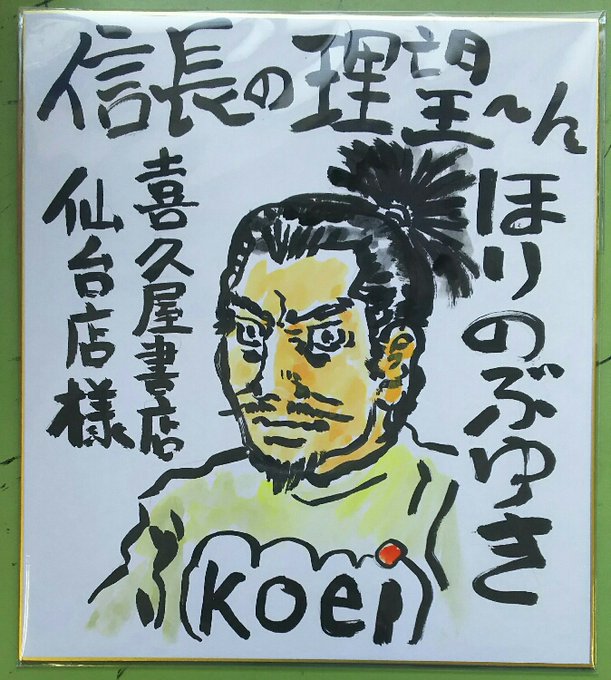 信長の理望〜ん
ほりのぶゆき
喜久屋書店
仙台店様
koei